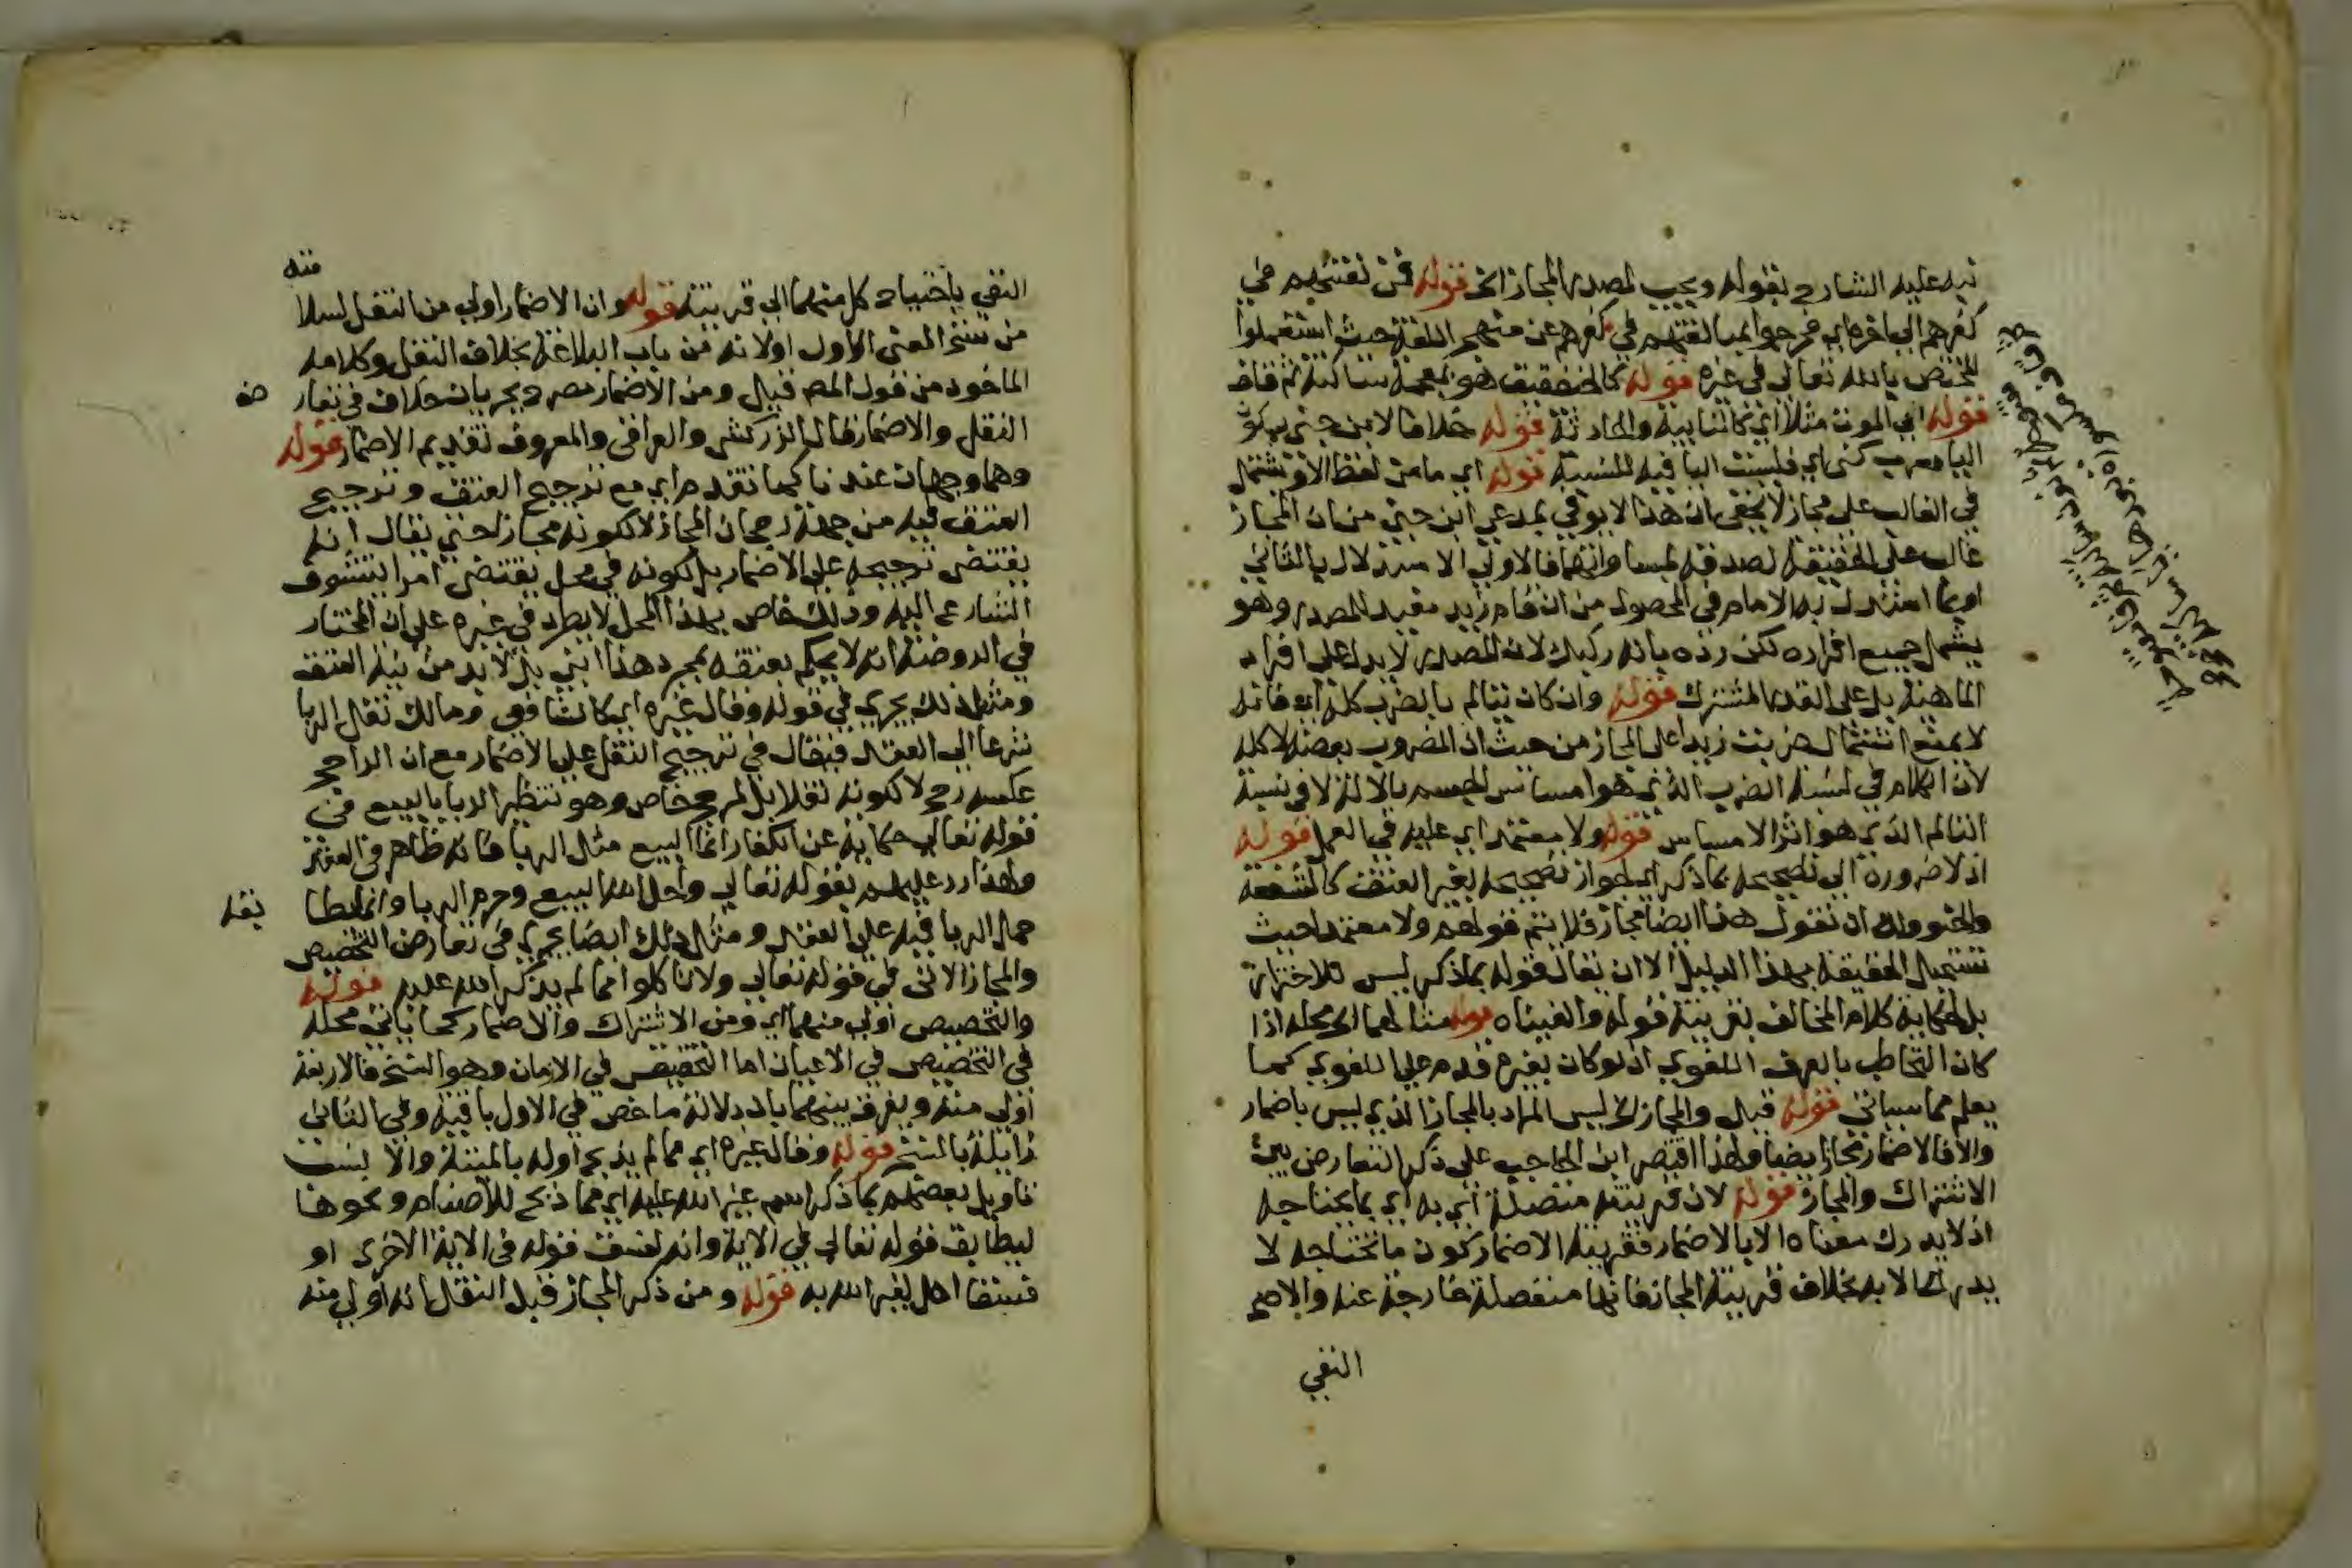 نبه عليه الشارح بقوله ويجيب لمصدر المجاز الخ قوله فمن تعنتهم في
كفرهم الى اخره اي خرجوا بمبالغتهم في كفرهم عن منهج اللغة حيث استعملوا
المختص بالله تعالى في غيره قوله كالخنفقيق هو بمعجمة ساكنة ثم قاف
قوله اي الموت مثلا اي كالنايبة والحادثة قوله خلافا لابن جني بسكون
اليا معرب كني اي فليست اليا فيه للنسبة قوله اي ما من لفظ الا ويشتمل
في الغالب على مجاز لا يخفى ان هذا لا يوفي بمدعي ابن جني من ان المجاز
غالب على الحقيقة لصدقه بمساواتهما فالاولى الاستدلال بالثاني
او بما استدل به الامام في المحصول من ان قام زيد مفيد للمصدر وهو
يشمل جميع افراده لكن رده بانه ركيك لان المصدر لا يدل على افراد
الماهية بل على القدر المشترك قوله وان كان يتالم بالضرب كله اي فانه
لا يمنع اشتمال ضربت زيدا على المجاز من حيث ان المضروب بعضه لا كله
لان الكلام في نسبة الضرب الذي هو امساس الجسم بالالة لا في نسبة
التالم الذي هو اثر الامساس قوله ولا معتمدا اي عليه في العمل قوله
اذ لا ضرورة الى تصحيحه بما ذكر اي لجواز تصحيحه بغير العتق كالشفقة
والحنو ولك ان تقول هذا ايضا مجاز فلا يتم قولهم ولا معتمدا حيث
تستحيل الحقيقة بهذا الدليل الا ان يقال قوله بما ذكر ليس للاحتراز
بل لحكاية كلام المخالف بقرينة قوله والغيناه قوله مثالهما الى محله اذا
كان التخاطب بالعرف اللغوي اذ لو كان بغيره قدم على اللغوي كما
يعلم مما سياتي قوله قيل والمجاز الا ليس المراد بالمجاز الذي ليس باضمار
والا فالاضمار مجاز ايضا ولهذا اقتصر ابن الحاجب على ذكر التعارض بين
الاشتراك والمجاز قوله لان قرينته متصلة اي به اي بما يحتاجه
اذ لا يدرك معناه الا بالاضمار فقرينة الاضمار كون ما يحتاجه لا
يدرك الا به بخلاف قرينة المجاز فانها منفصلة خارجة عنه والاصح
النفي
النفي باحتياج كل منهما الى قرينة قوله وان الاضمار اولى من النقل لسلامته
من نسخ المعنى الاول اولانه من باب البلاغة بخلاف النقل وكلامه
الماخود من قول المص قيل ومن الاضمار مصرح بجريان خلاف في تعارض
النقل والاضمار قال الزركشي والعراقي والمعروف تقديم الاضمار قوله
وهما وجهان عندنا كما تقدم اي مع ترجيح العتق وترجيح
العتق فيه من جهة رجحان المجاز لا لكونه مجازا حتى يقال انه
يقتضي ترجيحه على الاضمار بل لكونه في محل يقتضي امرا يتشوف
الشارع اليه وذلك خاص بهذا المحل لا يطرد في غيره على ان المختار
في الروضة انه لا يحكم بعتقه بمجرد هذا ابني بل لا بد من نية العتق
ومثل ذلك يجري في قوله وقال غيره اي كالشافعي ومالك نقل الربا
شرعا الى العقد فيقال في ترجيح النقل على الاضمار مع ان الراجح
عكسه رجح لا لكونه نقلا بل لمرجح خاص وهو تنظير الربا بالبيع في
قوله تعالى حكاية عن الكفار انما البيع مثل الربا فانه ظاهر في العقد
ولهذا رد عليهم بقوله تعالى واحل الله البيع وحرم الربا وانما يطابقه
حمل الربا فيه على العقد ومثل ذلك ايضا يجري في تعارض التخصيص
والمجاز الاتي في قوله تعالى ولا تاكلوا مما لم يذكر الله عليه قوله
والتخصيص اولى منهما اي ومن الاشتراك والاضمار كما ياتي محله
في التخصيص في الاعيان اما التخصيص في الازمان وهو النسخ فالاربعة
اولى منه ويفرق بينهما بان دلالة ما خص في الاول باقية وفي الثاني
زايلة بالنسخ قوله وقال غيره اي مما لم يذبح اوله بالميتة والا لنسب
تاويل بعضهم بما ذكر اسم غير الله عليه اي مما ذبح للاصنام ونحوها
ليطابق قوله تعالى في الاية وانه لفسق قوله في الاية الاخرى او
فسقا اهل لغير الله به قوله ومن ذكر المجاز قبل النقل انه اولى منه